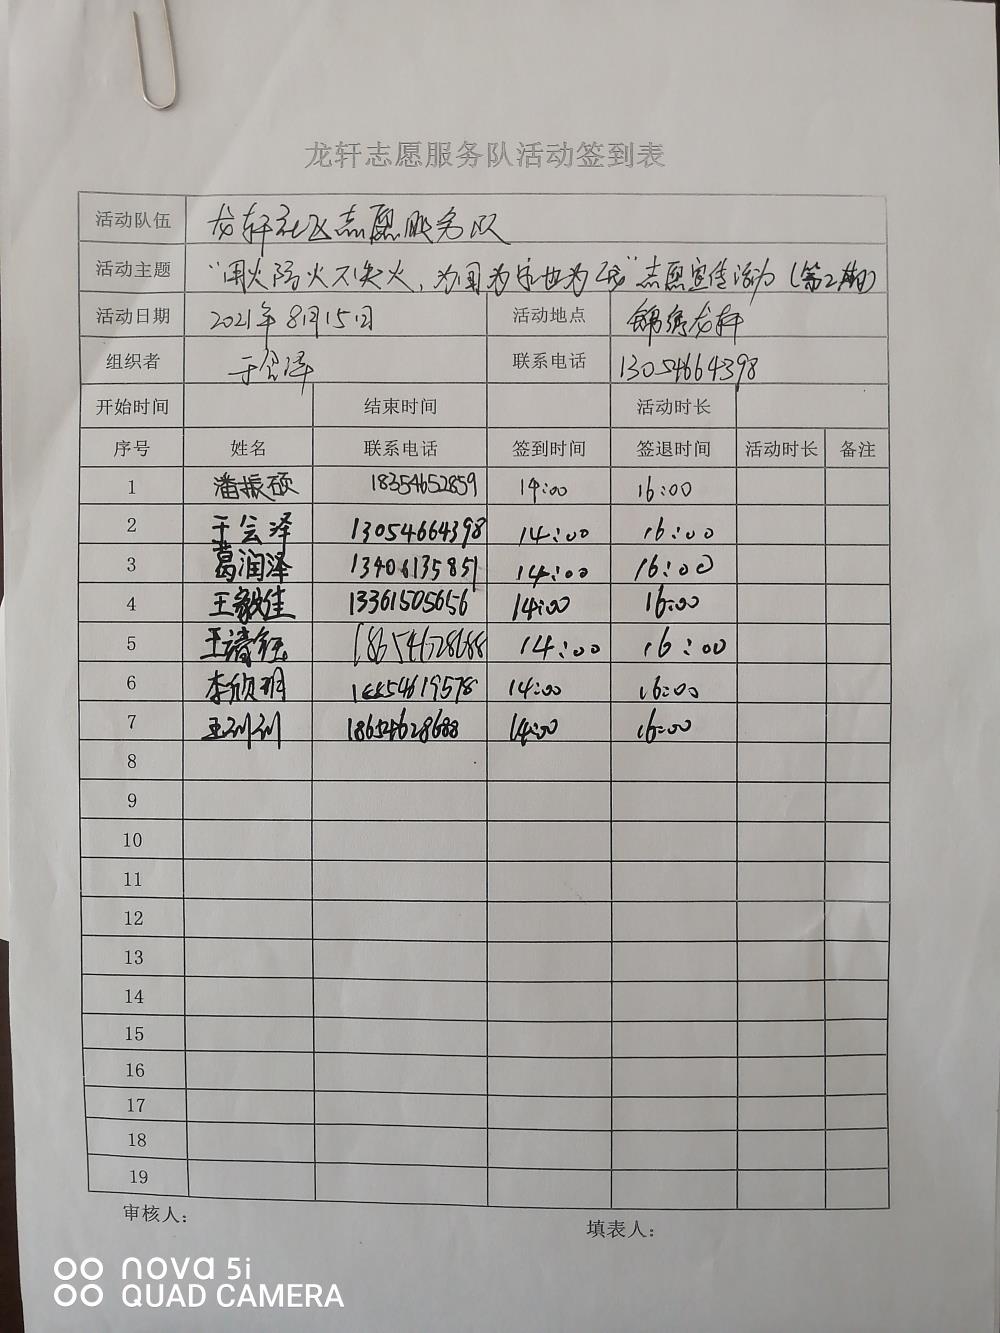 龙轩志愿服务队活动签到表
活动队伍 龙轩社区志愿服务队
活动主题 "用火防火不失火，为国为家也为我"志愿宣传活动（第2期）
活动日期 2021年8月15日 活动地点 锦绣龙轩
组织者 于会泽 联系电话 13054664398
开始时间 结束时间 活动时长
序号 姓名 联系电话 签到时间 签退时间 活动时长 备注
1 潘振硕 18354652859 14:00 16:00
2 于会泽 13054664398 14:00 16:00
3 葛润泽 13406135851 14:00 16:00
4 王毅佳 13361505656 14:00 16:00
5 18654628688 14:00 16:00
6 李欣玥 14:00 16:00
7 18654628688 14:00 16:00
8
9
10
11
12
13
14
15
16
17
18
19
审核人： 填表人：
nova 5i
QUAD CAMERA